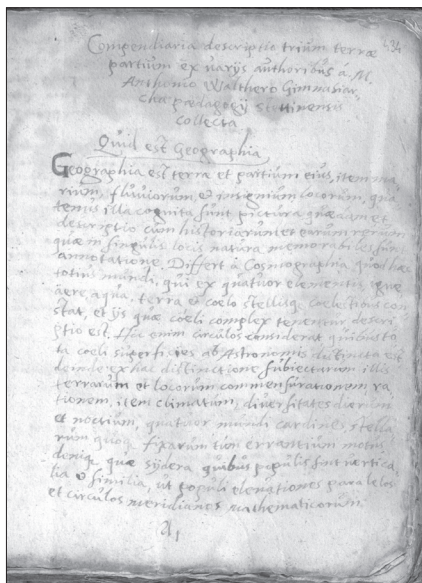 434
Compendiaria descriptio trium terræ
partium ex varijs authoribus á M.
Anthonio Walthero Gimnasiar
cha pædagogij Stettinensis
Collecta
Quid est Geographia
Geographia est terræ et partium eius, item ma
rium, fluviorum et insignium locorum, qua
tenus illa cognita sunt pictura quædam et
descriptio cum historiarum et earum rerum
quæ in singulis locis natura memorabiles sunt
annotatione. Differt à Cosmographia, quod hæc
totius mundi, qui ex quatuor elementis, igne
aere, aqua, terra et coelo stellisq. coelectibus con
stat, et ijs quæ coeli complex tenentur descri
ptio est. Hæc enim circulos considerat quibus to
ta coeli superficies ab Astronomis distincta est
deinde ex hac distinctione subiectarum illis
terrarum et locorum commensurationem ra
tionem, item climatum, diversitates dierum
et noctium, quatuor mundi cardines, stella
rum quoq. fixarum tum errantium motum
deniq. quæ sydera quibus populis sint vertica
lia et similia, ut populi elevationes paralelos
et circulos meridianos mathematicorum
A1